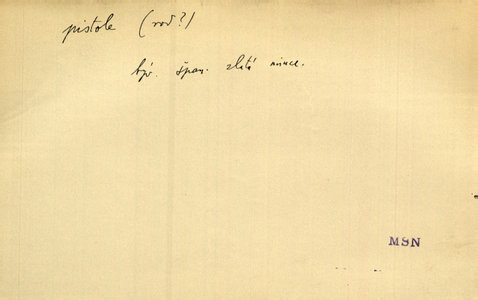 pistole (rod?)
býv. špan. zlatá mince.
MSN